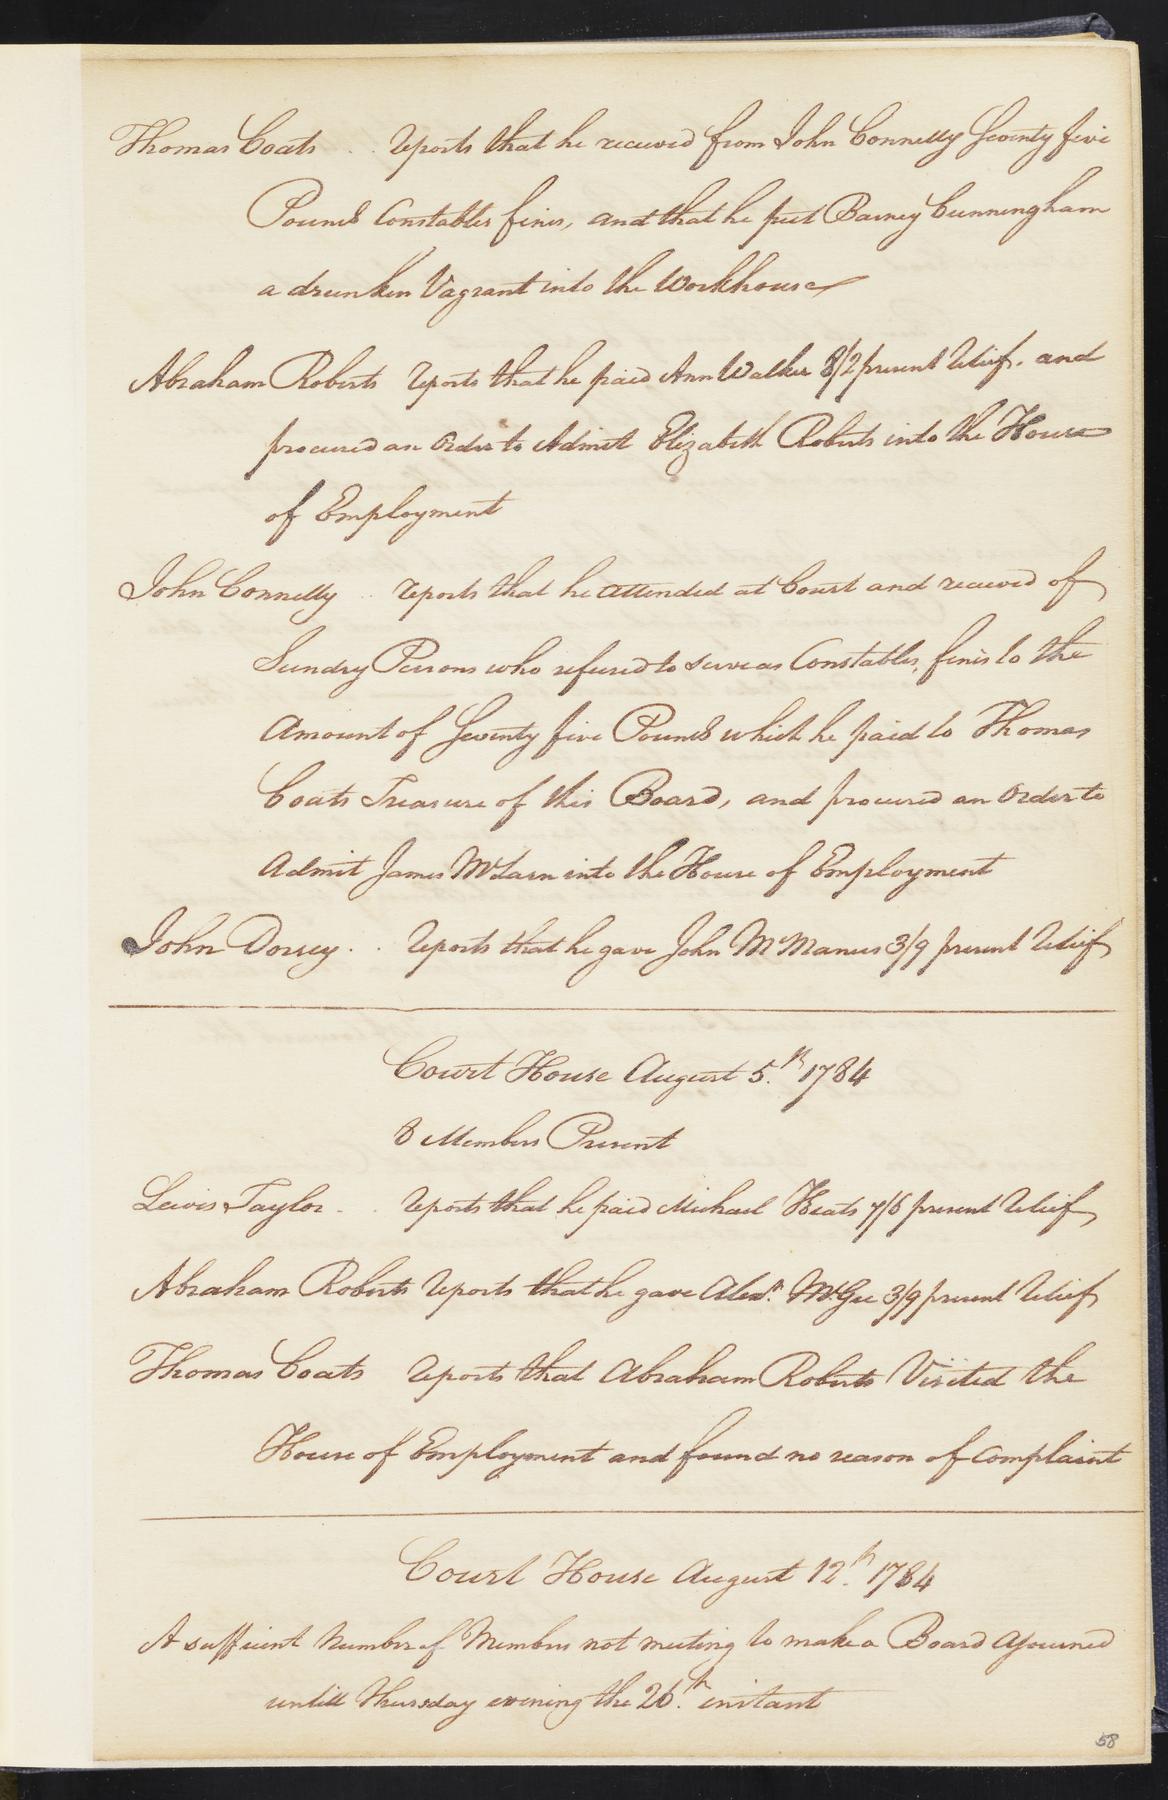 Thomas Coats . . reports that he received from John Connelly Seventy five
Pounds Constables fines, and that he put Barney Cunningham
a drunken Vagrant into the Workhouse
Abraham Roberts reports that he paid Ann Walker 8/2 present relief. and
procured an Order to Admitt Elizabeth Roberts into the House
of Employment
John Connelly . . reports that he attended at Court and received of
Sundry Persons who refused to serve as Constables, fines to the
Amount of Seventy five Pounds which he paid to Thomas
Coats Treasure of this Board, and procured an Order to
Admit James McLarn into the House of Employment
John Dorsey . . reports that he gave John McManus 3/9 present relief
Court House August 5.th 1784
8 Members Present
Lewis Taylor . . reports that he paid Michael Heats 7/6 present relief
Abraham Roberts reports that he gave Alexr. McGee 3/9 present relief
Thomas Coats reports that Abraham Roberts Visited the
House of Employment and found no reason of Complaint
Court House August 12.th 1784
A suffiient Number of Members not meeting to make a Board ajourned
untill Thursday evening the 26.th instant
58